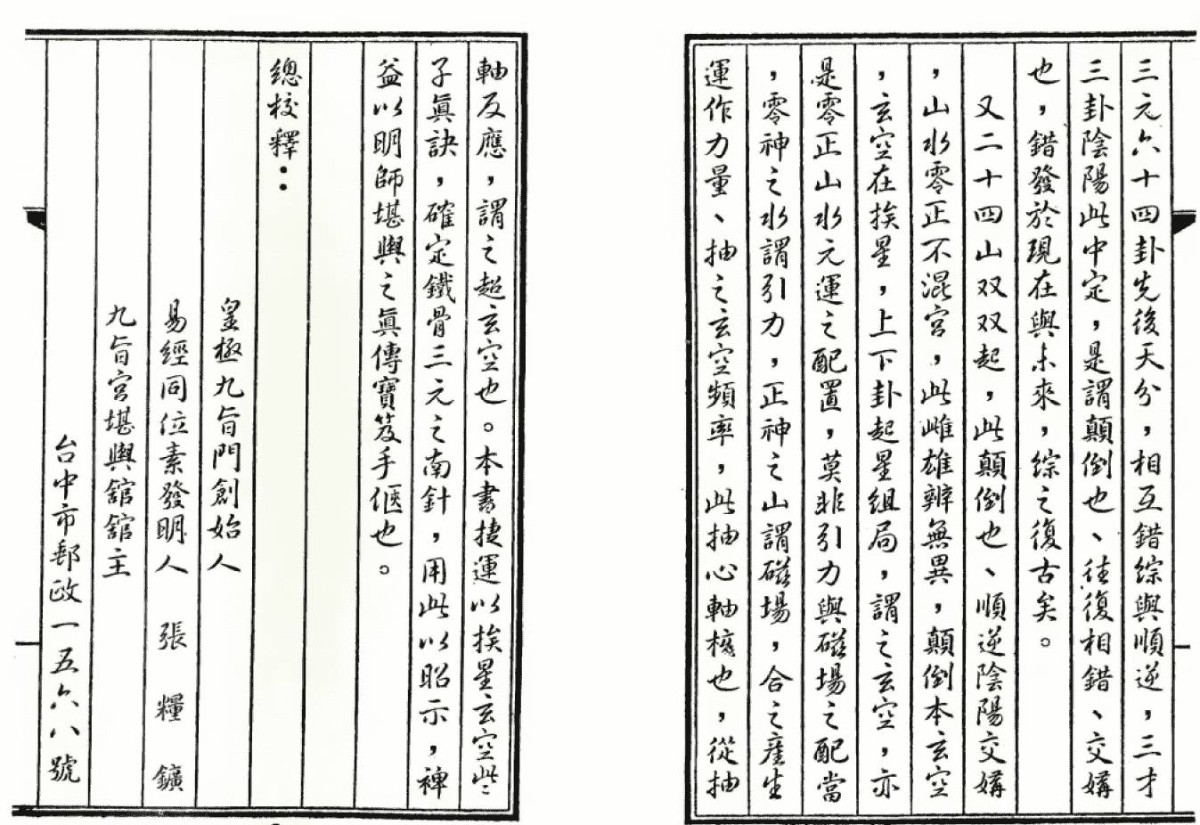 三元六十四卦先後天分，相互錯綜與順逆，三才
三卦陰陽此中定，是謂顛倒也、往復相錯、交媾
也，錯發於現在與未來，綜之復古矣。
又二十四山双双起，此顛倒也、順逆陰陽交媾
，山水零正不混宮，此雌雄辨無異，顛倒本玄空
，玄空在挨星，上下卦起星組局，謂之玄空，亦
是零正山水元運之配置，莫非引力與磁場之配當
，零神之水謂引力，正神之山謂磁場，合之產生
運作力量、抽之玄空頻率，此抽心軸樁也，從抽
軸反應，謂之超玄空也。本書捷運以挨星玄空些
子眞訣，確定鐵骨三元之南針，用此以昭示，裨
益以明師堪輿之眞傳寶笈手偃也。
總校釋：
皇極九旨門創始人
易經同位素發明人 張糧鑛
九旨宮堪輿舘舘主
台中市郵政一五六八號